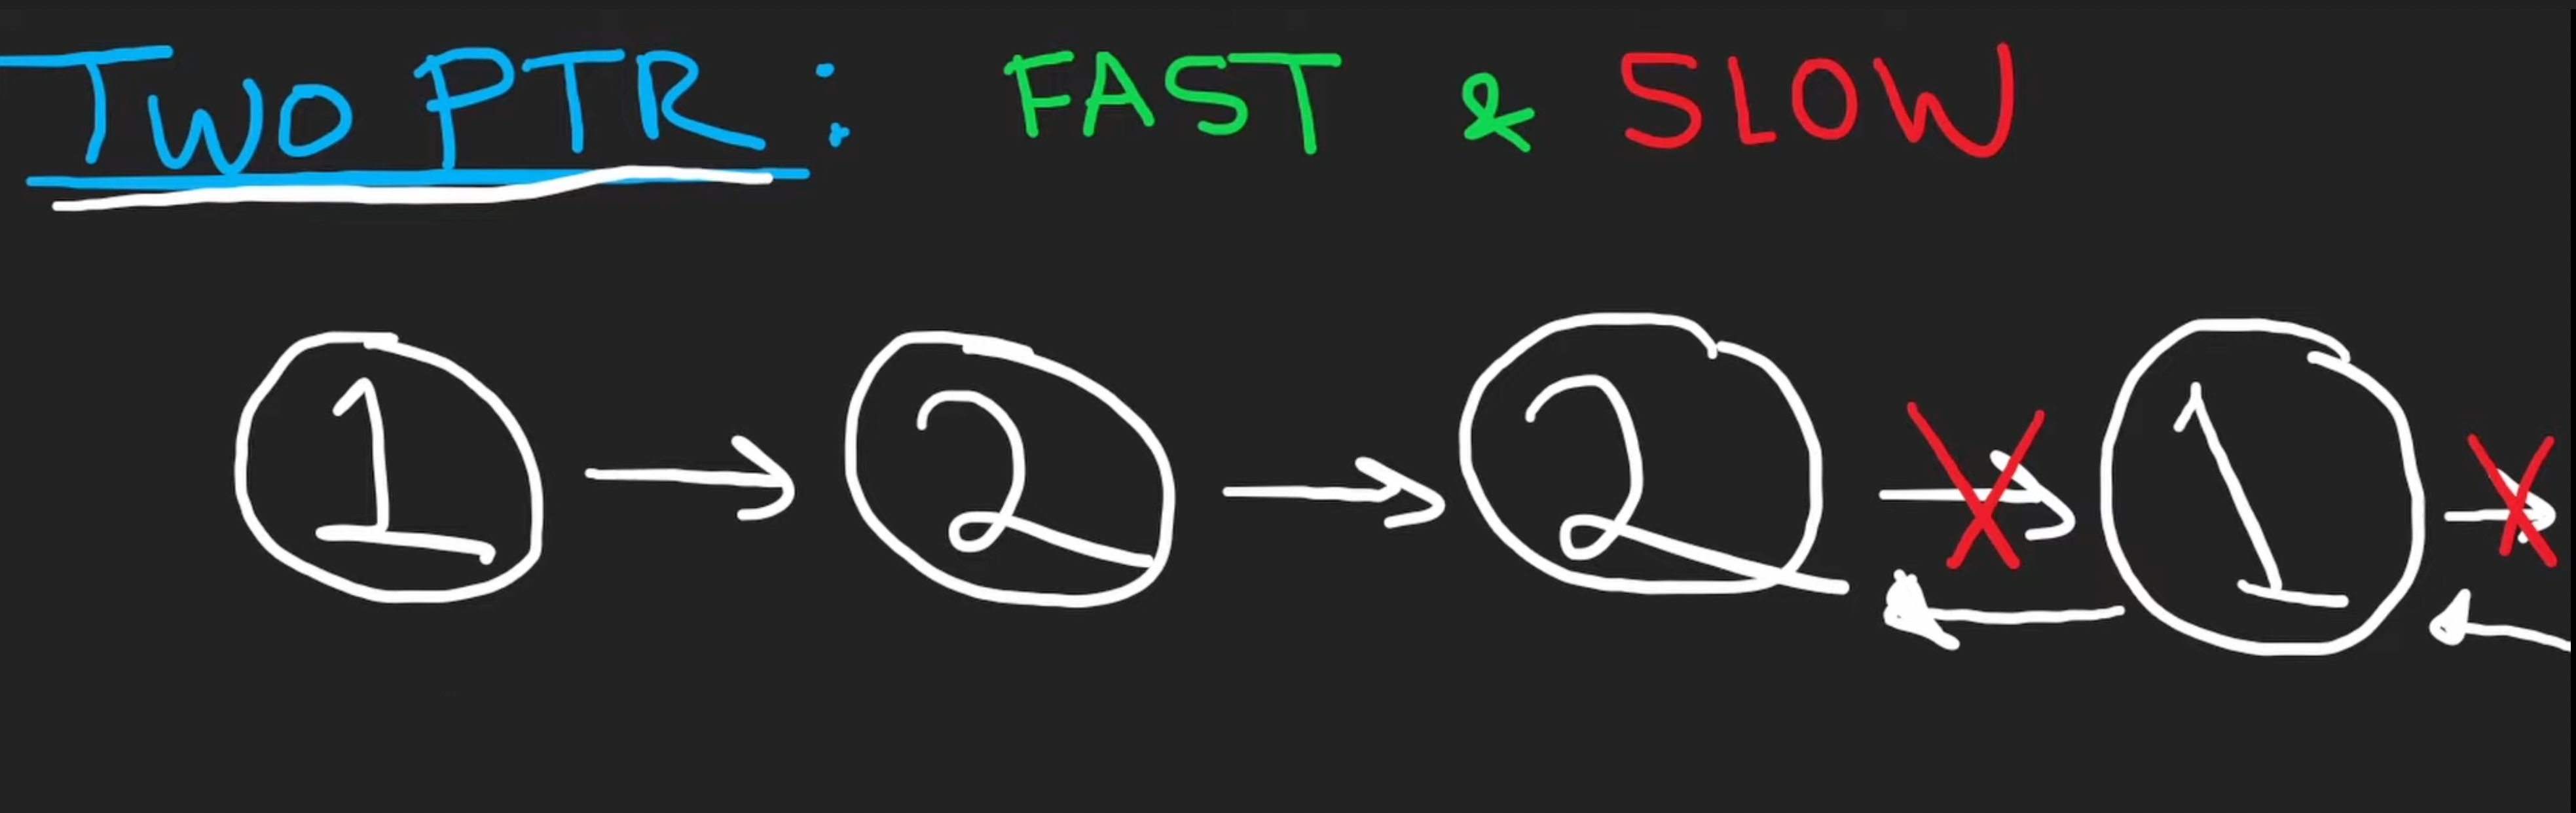 TWO PTR: FAST & SLOW
1 → 2 → 2 → 1 →